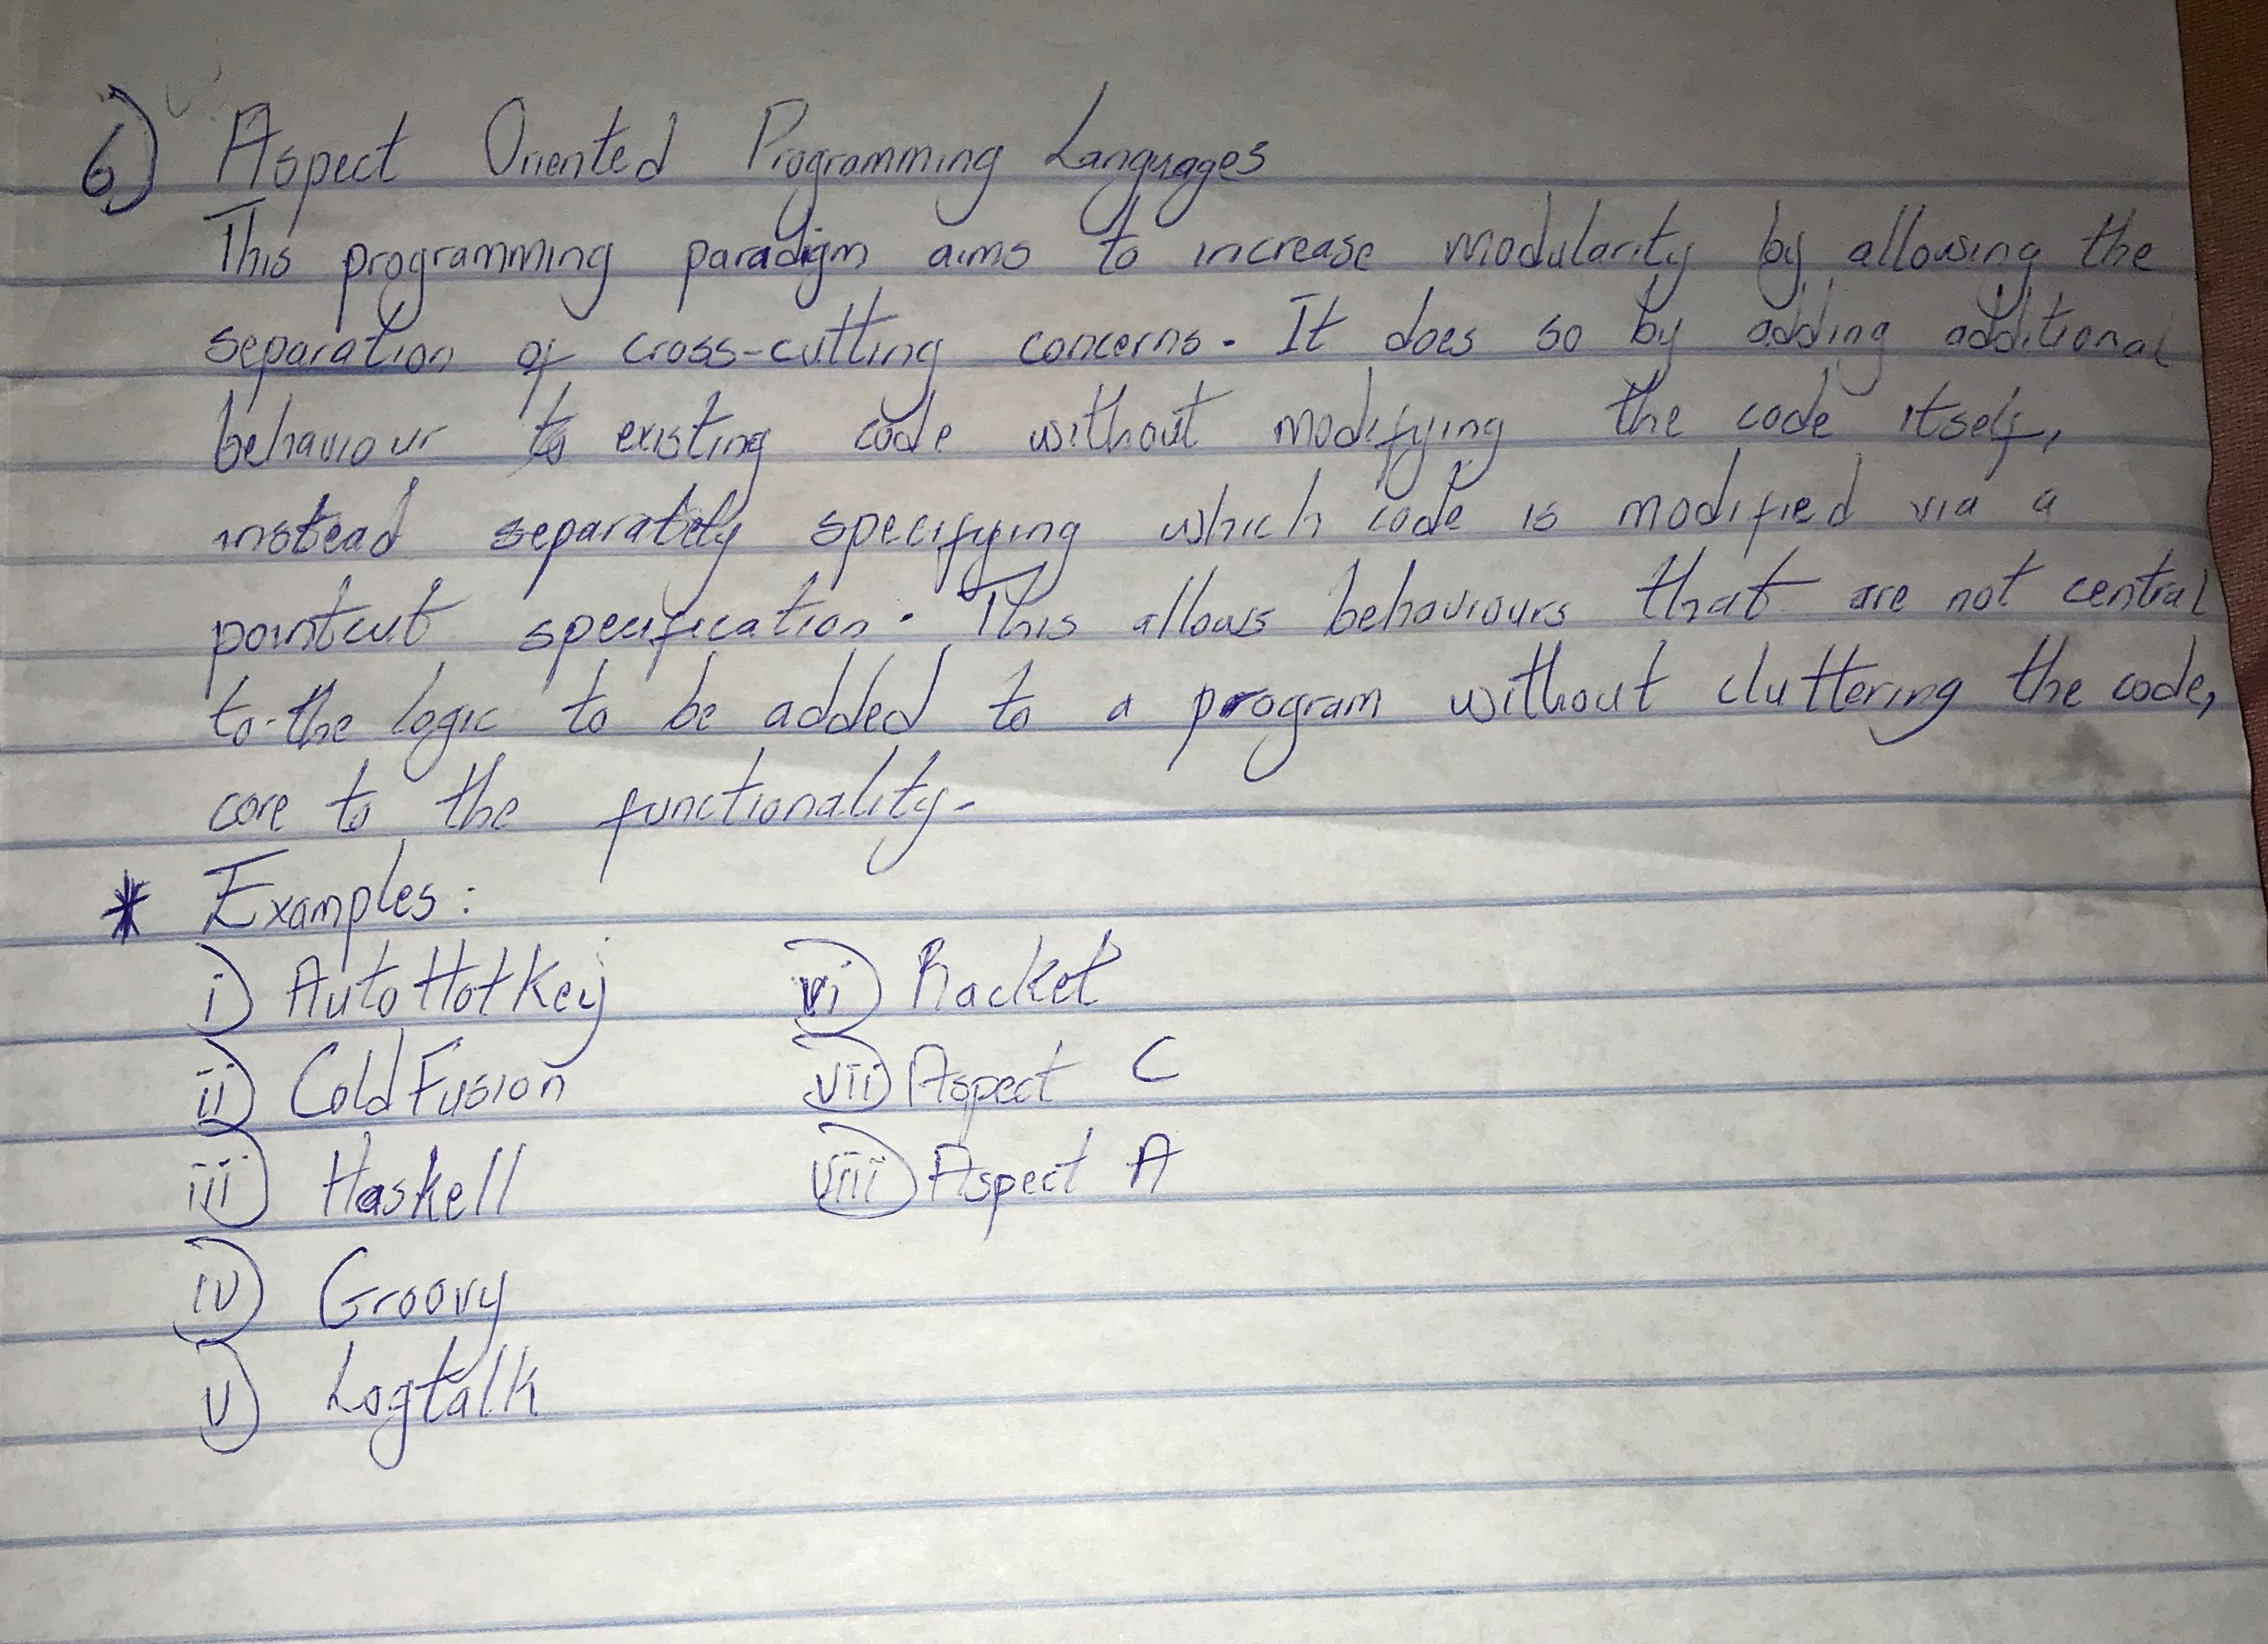 6) Aspect Oriented Programming Languages
This programming paradigm aims to increase modularity by allowing the
separation of cross-cutting concerns. It does so by adding additional
behaviour to existing code without modifying the code itself,
instead separately specifying which code is modified via a
pointcut specification. This allows behaviours that are not central
to the logic to be added to a program without cluttering the code,
core to the functionality.
* Examples:
i) AutoHotKey vi) Racket
ii) ColdFusion vii) Aspect C
iii) Haskell viii) Aspect A
iv) Groovy
v) Logtalk